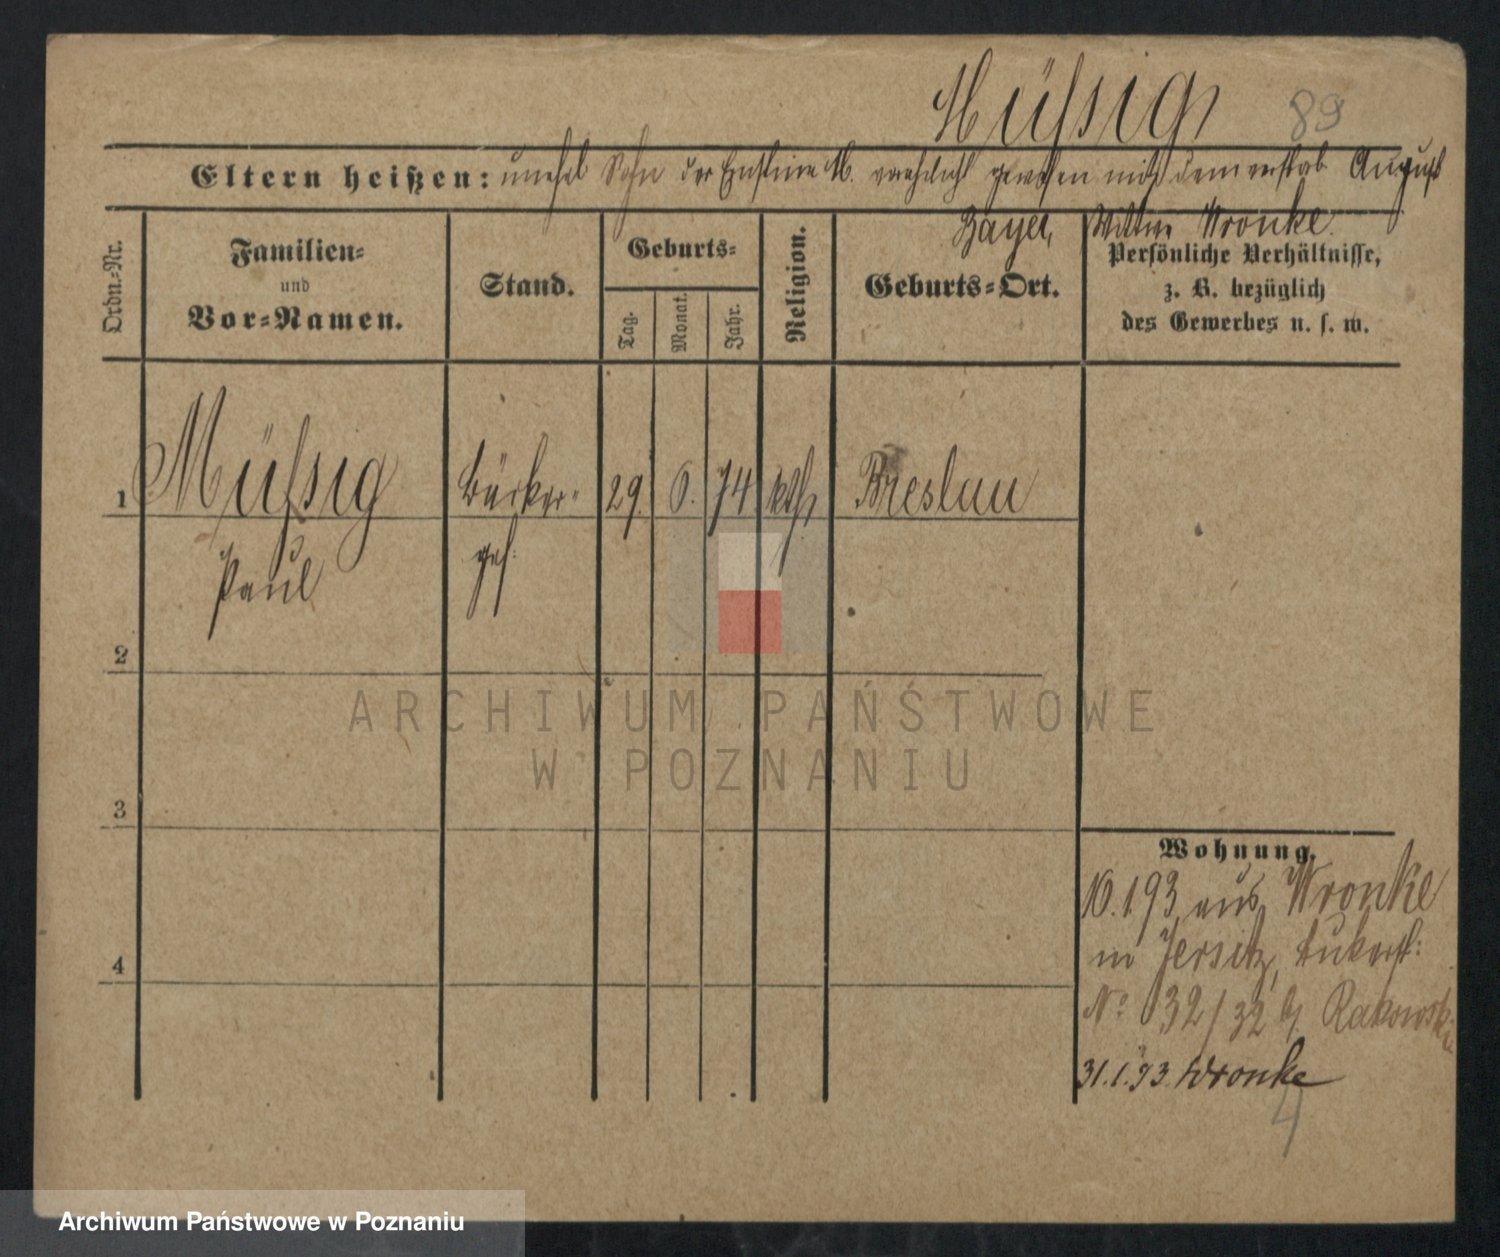 Müſsig 89
Eltern heißen: unehel Sohn der Ernstine M. verehelicht gewesen mit dem verstorb August
Bayer, Wittwe Wronke.
Ordn.-Nr.
Familien-
und
Vor-Namen.
Stand.
Geburts-
Tag.
Monat.
Jahr.
Religion.
Geburts-Ort.
Persönliche Verhältnisse,
z. B. bezüglich
des Gewerbes u. s. w.
1 Müſsig Bäcker- 29. 6. 74 kth Breslau
Paul ges:
2
3
4
Wohnung.
10.1.93 aus Wronke
in Jersitz,
No 32/32 b/ Rakowski
31.1.93. Wronke
4
ARCHIWUM PAŃSTWOWE
W POZNANIU
Archiwum Państwowe w Poznaniu